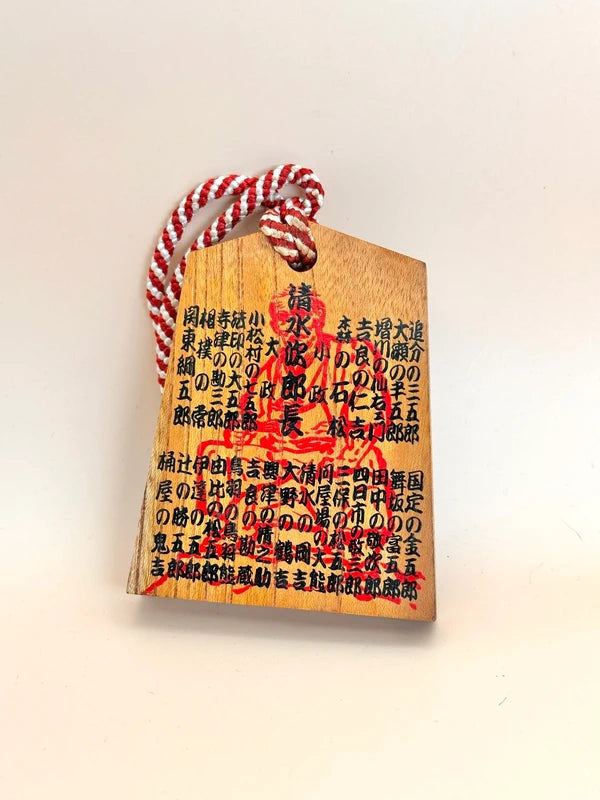 追分の三五郎
大瀬の半五郎
増川の仙右ヱ門
吉良の仁吉
森の石松
小政
清水次郎長
大政
小松村の七五郎
法印の大五郎
寺津の勘三郎
相模の常
関東綱五郎
国定の金五郎
舞坂の富五郎
田中の敬次郎
四日市の敬三郎
三保の松五郎
問屋場の大熊
清水の岡吉
大野の鶴吉
興津の清之助
吉良の勘蔵
鳥羽の鳥羽熊
由比の松五郎
伊達の五郎
辻の勝五郎
桶屋の鬼吉